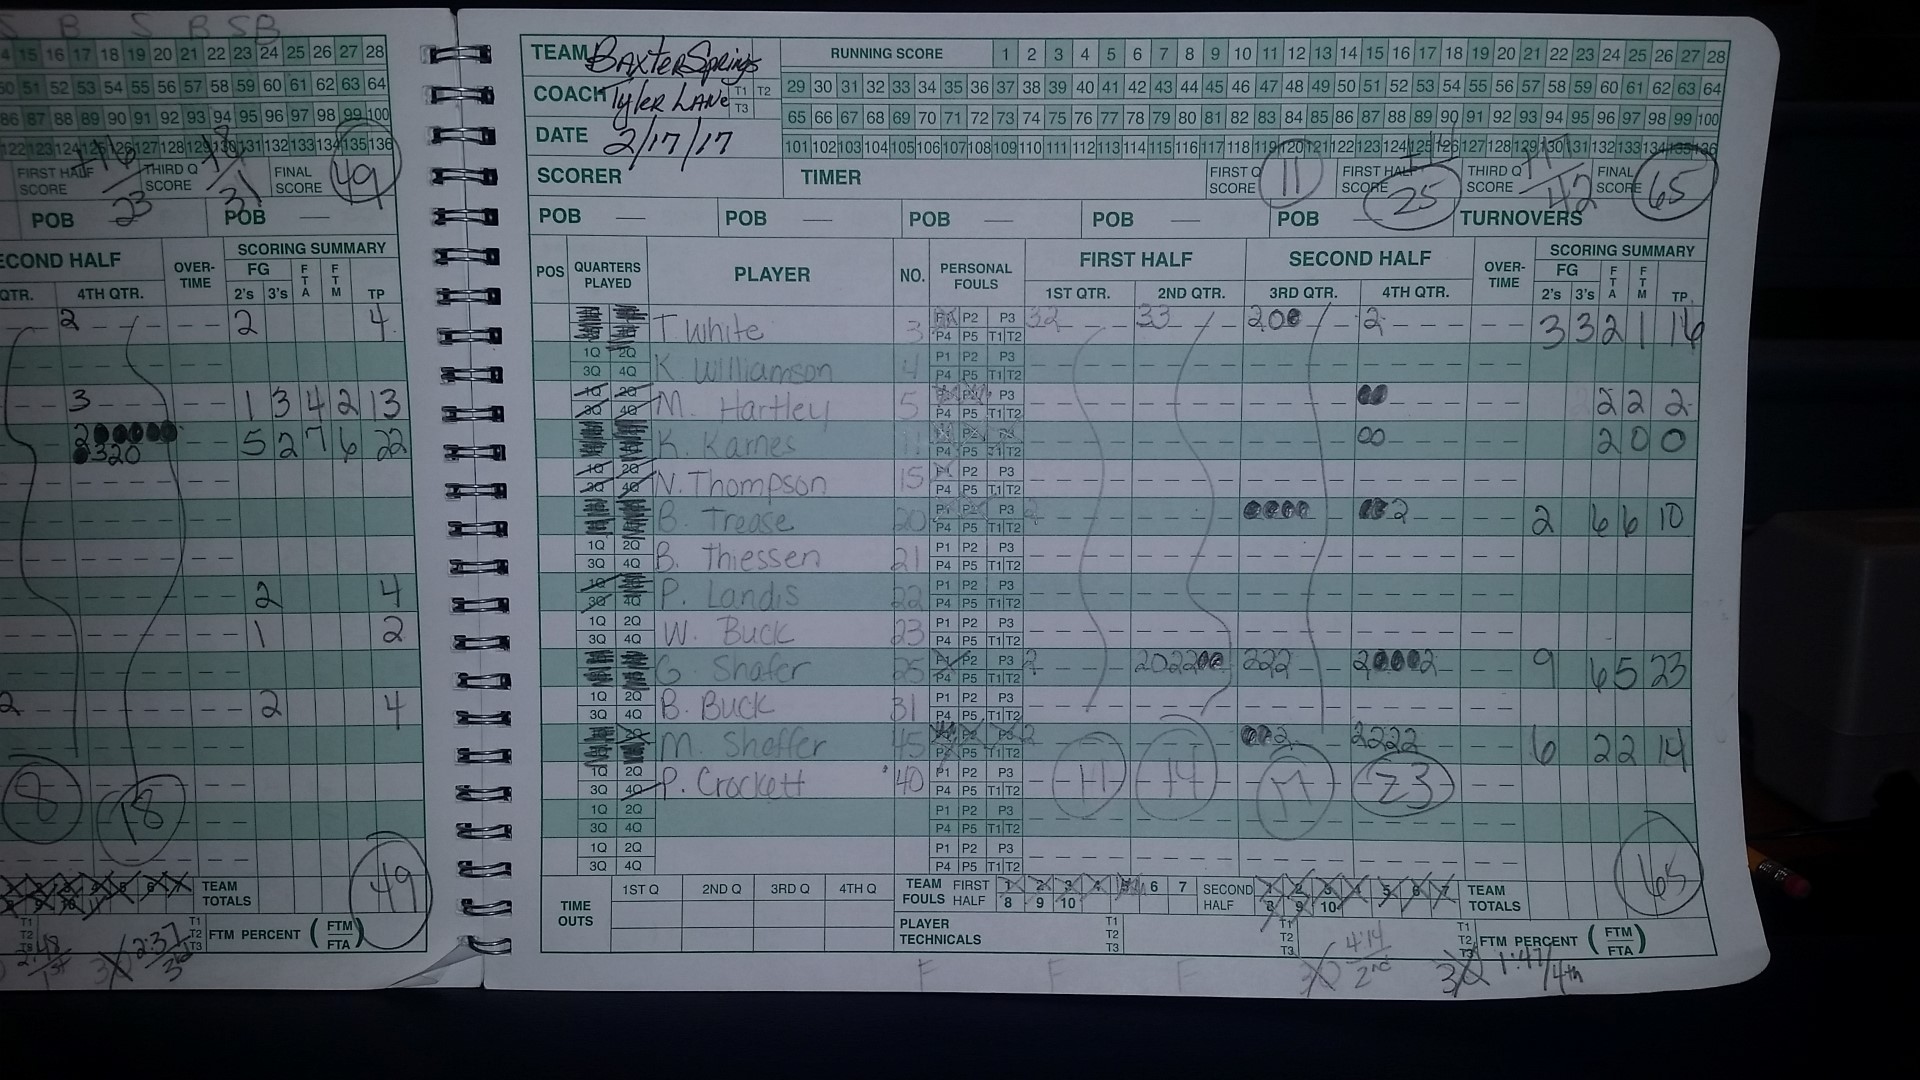 S B S B S B
4 15 16 17 18 19 20 21 22 23 24 25 26 27 28
50 51 52 53 54 55 56 57 58 59 60 61 62 63 64
86 87 88 89 90 91 92 93 94 95 96 97 98 99 100
122 123 124 125 126 127 128 129 130 131 132 133 134 135 136
FIRST HALF SCORE 23 THIRD Q SCORE 31 FINAL SCORE 49
POB POB —
SECOND HALF OVER-TIME SCORING SUMMARY
QTR. 4TH QTR. FG 2's 3's FTA FTM TP
2 2 4
3 1 3 4 2 13
2 5 2 7 6 22
320
2 4
1 2
2 2 4
8 18
TEAM TOTALS 49
T1 T2 T3 2:48 1st 30 2:37 3rd T1 T2 T3 FTM PERCENT ( FTM FTA )
TEAM Baxter Springs RUNNING SCORE 1 2 3 4 5 6 7 8 9 10 11 12 13 14 15 16 17 18 19 20 21 22 23 24 25 26 27 28
COACH Tyler Lane T1 T2 T3 29 30 31 32 33 34 35 36 37 38 39 40 41 42 43 44 45 46 47 48 49 50 51 52 53 54 55 56 57 58 59 60 61 62 63 64
65 66 67 68 69 70 71 72 73 74 75 76 77 78 79 80 81 82 83 84 85 86 87 88 89 90 91 92 93 94 95 96 97 98 99 100
DATE 2/17/17 101 102 103 104 105 106 107 108 109 110 111 112 113 114 115 116 117 118 119 120 121 122 123 124 125 126 127 128 129 130 131 132 133 134 135 136
SCORER TIMER FIRST Q SCORE 11 FIRST HALF SCORE +14 25 THIRD Q SCORE +17 42 FINAL SCORE 65
POB — POB — POB — POB — POB — TURNOVERS
POS QUARTERS PLAYED PLAYER NO. PERSONAL FOULS FIRST HALF SECOND HALF OVER-TIME SCORING SUMMARY
1ST QTR. 2ND QTR. 3RD QTR. 4TH QTR. FG 2's 3's FTA FTM TP
T. White 3 P2 P3 P4 P5 T1 T2 32 33 200 2 3 3 2 1 16
1Q 2Q 3Q 4Q K. Williamson 4 P1 P2 P3 P4 P5 T1 T2
1Q 2Q 3Q 4Q M. Hartley 5 P3 P4 P5 T1 T2 2 2 2
K. Karnes 11 P4 P5 T1 T2 00 2 0 0
1Q 2Q 3Q 4Q N. Thompson 15 P2 P3 P4 P5 T1 T2
B. Trease 20 P3 P4 P5 T1 T2 2 2 2 6 6 10
1Q 2Q 3Q 4Q B. Thiessen 21 P1 P2 P3 P4 P5 T1 T2
1Q 3Q 4Q P. Landis 22 P1 P2 P3 P4 P5 T1 T2
1Q 2Q 3Q 4Q W. Buck 23 P1 P2 P3 P4 P5 T1 T2
G. Shafer 25 P1 P2 P3 P4 P5 T1 T2 2 202200 222 200002 9 6 5 23
1Q 2Q 3Q 4Q B. Buck 31 P1 P2 P3 P4 P5 T1 T2
M. Sheffer 45 P5 T1 T2 2 2 2222 6 2 2 14
1Q 2Q 3Q 4Q P. Crockett 40 P1 P2 P3 P4 P5 T1 T2 11 14 17 23
1Q 2Q 3Q 4Q P1 P2 P3 P4 P5 T1 T2
1Q 2Q 3Q 4Q P1 P2 P3 P4 P5 T1 T2 65
TIME OUTS 1ST Q 2ND Q 3RD Q 4TH Q TEAM FOULS FIRST HALF 1 2 3 4 5 6 7 8 9 10 SECOND HALF 1 2 3 4 5 6 7 8 9 10 TEAM TOTALS
PLAYER TECHNICALS T1 T2 T3 T1 T2 T3 T1 T2 T3 FTM PERCENT ( FTM FTA )
F F F 30 4:14 2nd 30 1:47/4th